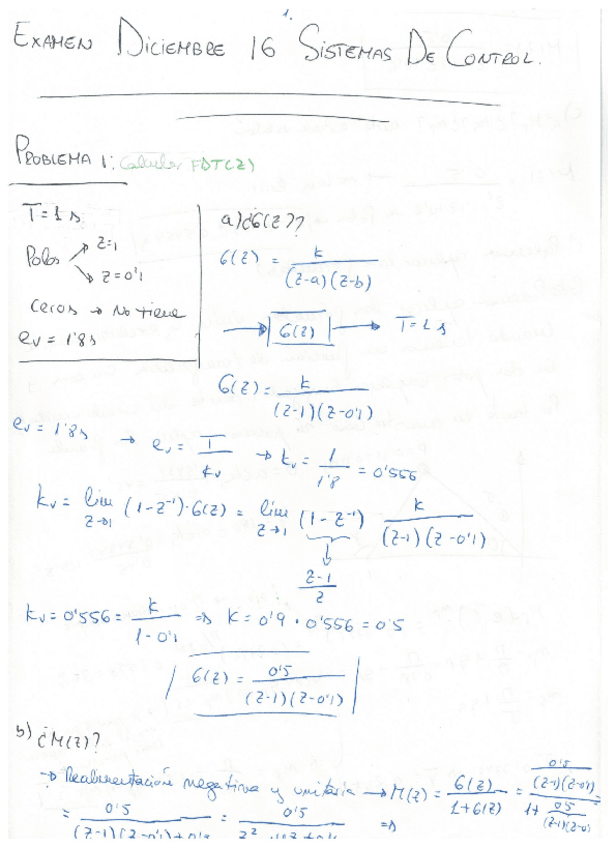 1.
EXAMEN DICIEMBRE 16 SISTEMAS DE CONTROL.
PROBLEMA 1: Calcular FDT(z)
T=1s
Polos → z=1
→ z=0'1
Ceros → No tiene
ev = 1'8s
a) ¿G(z)??
G(z) = k / (z-a)(z-b)
→ G(z) → T=1s
G(z) = k / (z-1)(z-0'1)
ev = 1'8s → ev = T/kv → kv = 1/1'8 = 0'556
kv = lim z→1 (1-z⁻¹)·G(z) = lim z→1 (1-z⁻¹) k / (z-1)(z-0'1)
↓
z-1 / z
kv = 0'556 = k / 1-0'1 ⇒ k = 0'9 · 0'556 = 0'5
G(z) = 0'5 / (z-1)(z-0'1)
b) ¿M(z)?
→ Realimentación negativa y unitaria → M(z) = G(z) / 1+G(z) = 0'5 / (z-1)(z-0'1) / 1 + 0'5 / (z-1)(z-0
= 0'5 / (z-1)(z-0'1)+0'5 = 0'5 / z² ⇒